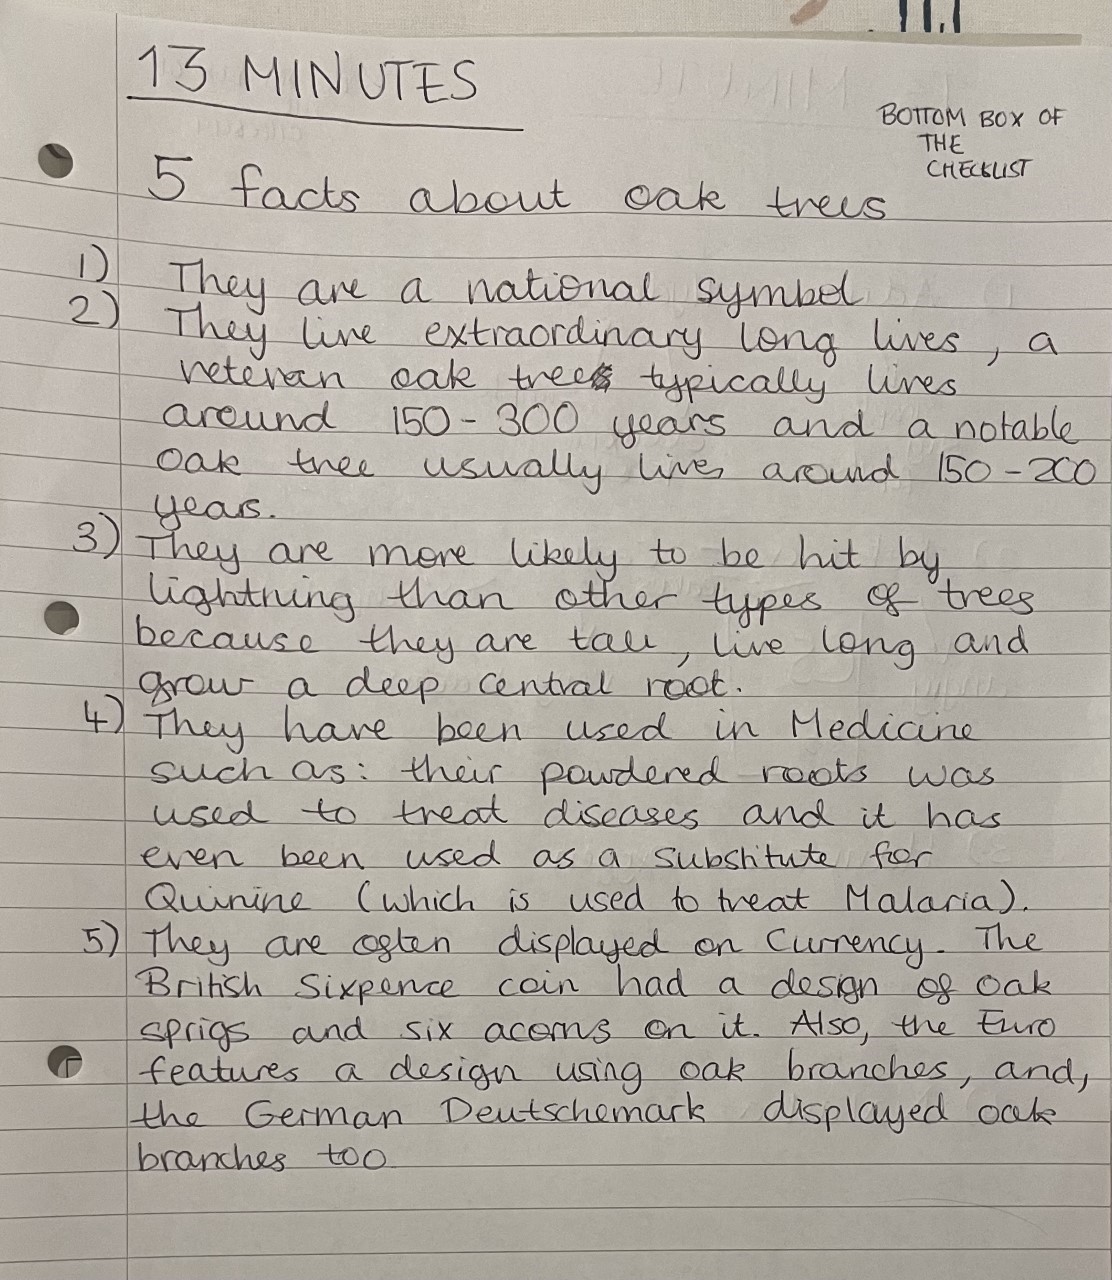 13 MINUTES
BOTTOM BOX OF
THE
CHECKLIST
5 facts about oak trees
1) They are a national symbol
2) They live extraordinary long lives, a
veteran oak tree typically lives
around 150-300 years and a notable
oak tree usually lives around 150-200
years.
3) They are more likely to be hit by
lightning than other types of trees
because they are tall, live long and
grow a deep central root.
4) They have been used in Medicine
such as: their powdered roots was
used to treat diseases and it has
even been used as a substitute for
Quinine (which is used to treat Malaria).
5) They are often displayed on Currency. The
British Sixpence coin had a design of oak
sprigs and six acorns on it. Also, the Euro
features a design using oak branches, and,
the German Deutschemark displayed oak
branches too